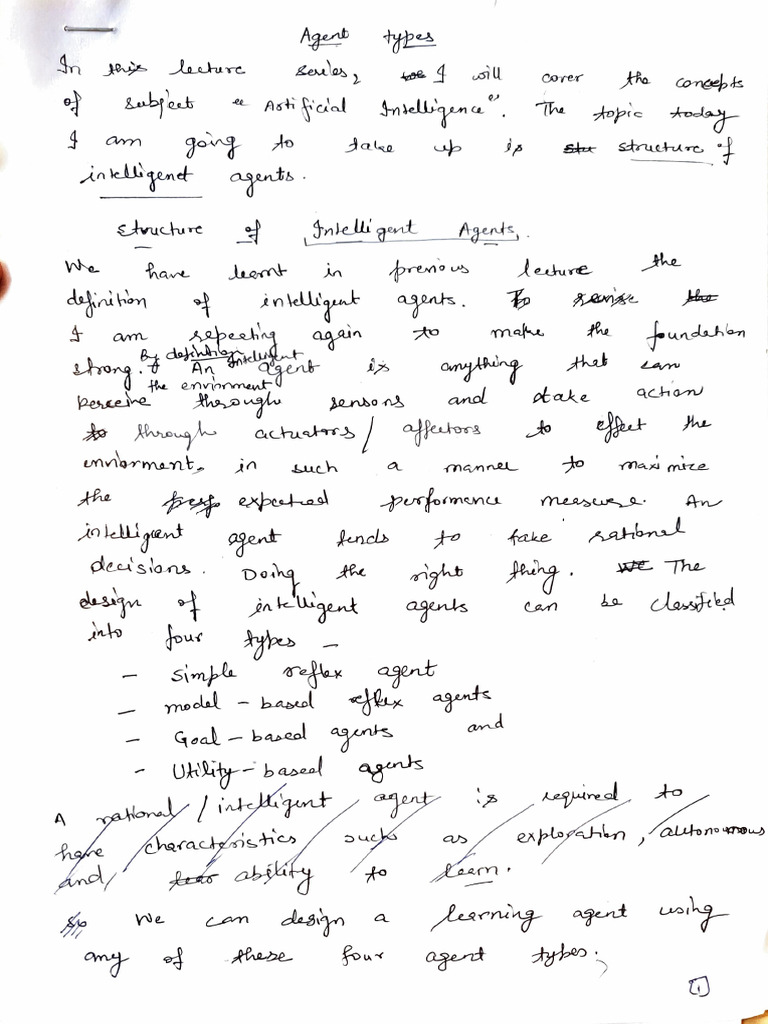 Agent types
In this lecture series, I will cover the concepts
of subject " Artificial Intelligence". The topic today
I am going to take up is structure of
intelligenet agents.
Structure of Intelligent Agents.
We have learnt in previous lecture the
definition of intelligent agents. To revise the
I am repeating again to make the foundation
By definition Intelligent
strong. An agent is anything that can
the envirnment
perceive through sensors and take action
to through actuators/ affectors to effect the
enviorment, in such a manner to maximize
the perf expected performance measure. An
intelligent agent tends to take rational
decisions. Doing the right thing. We The
design of intelligent agents can be classified
into four types –
- Simple reflex agent
- model-based reflex agents
- Goal-based agents and
- Utility-based agents
A rational/intelligent agent is required to
have characteristics such as exploration, autonomous
and, ability to learn.
We can design a learning agent using
any of these four agent types.
1